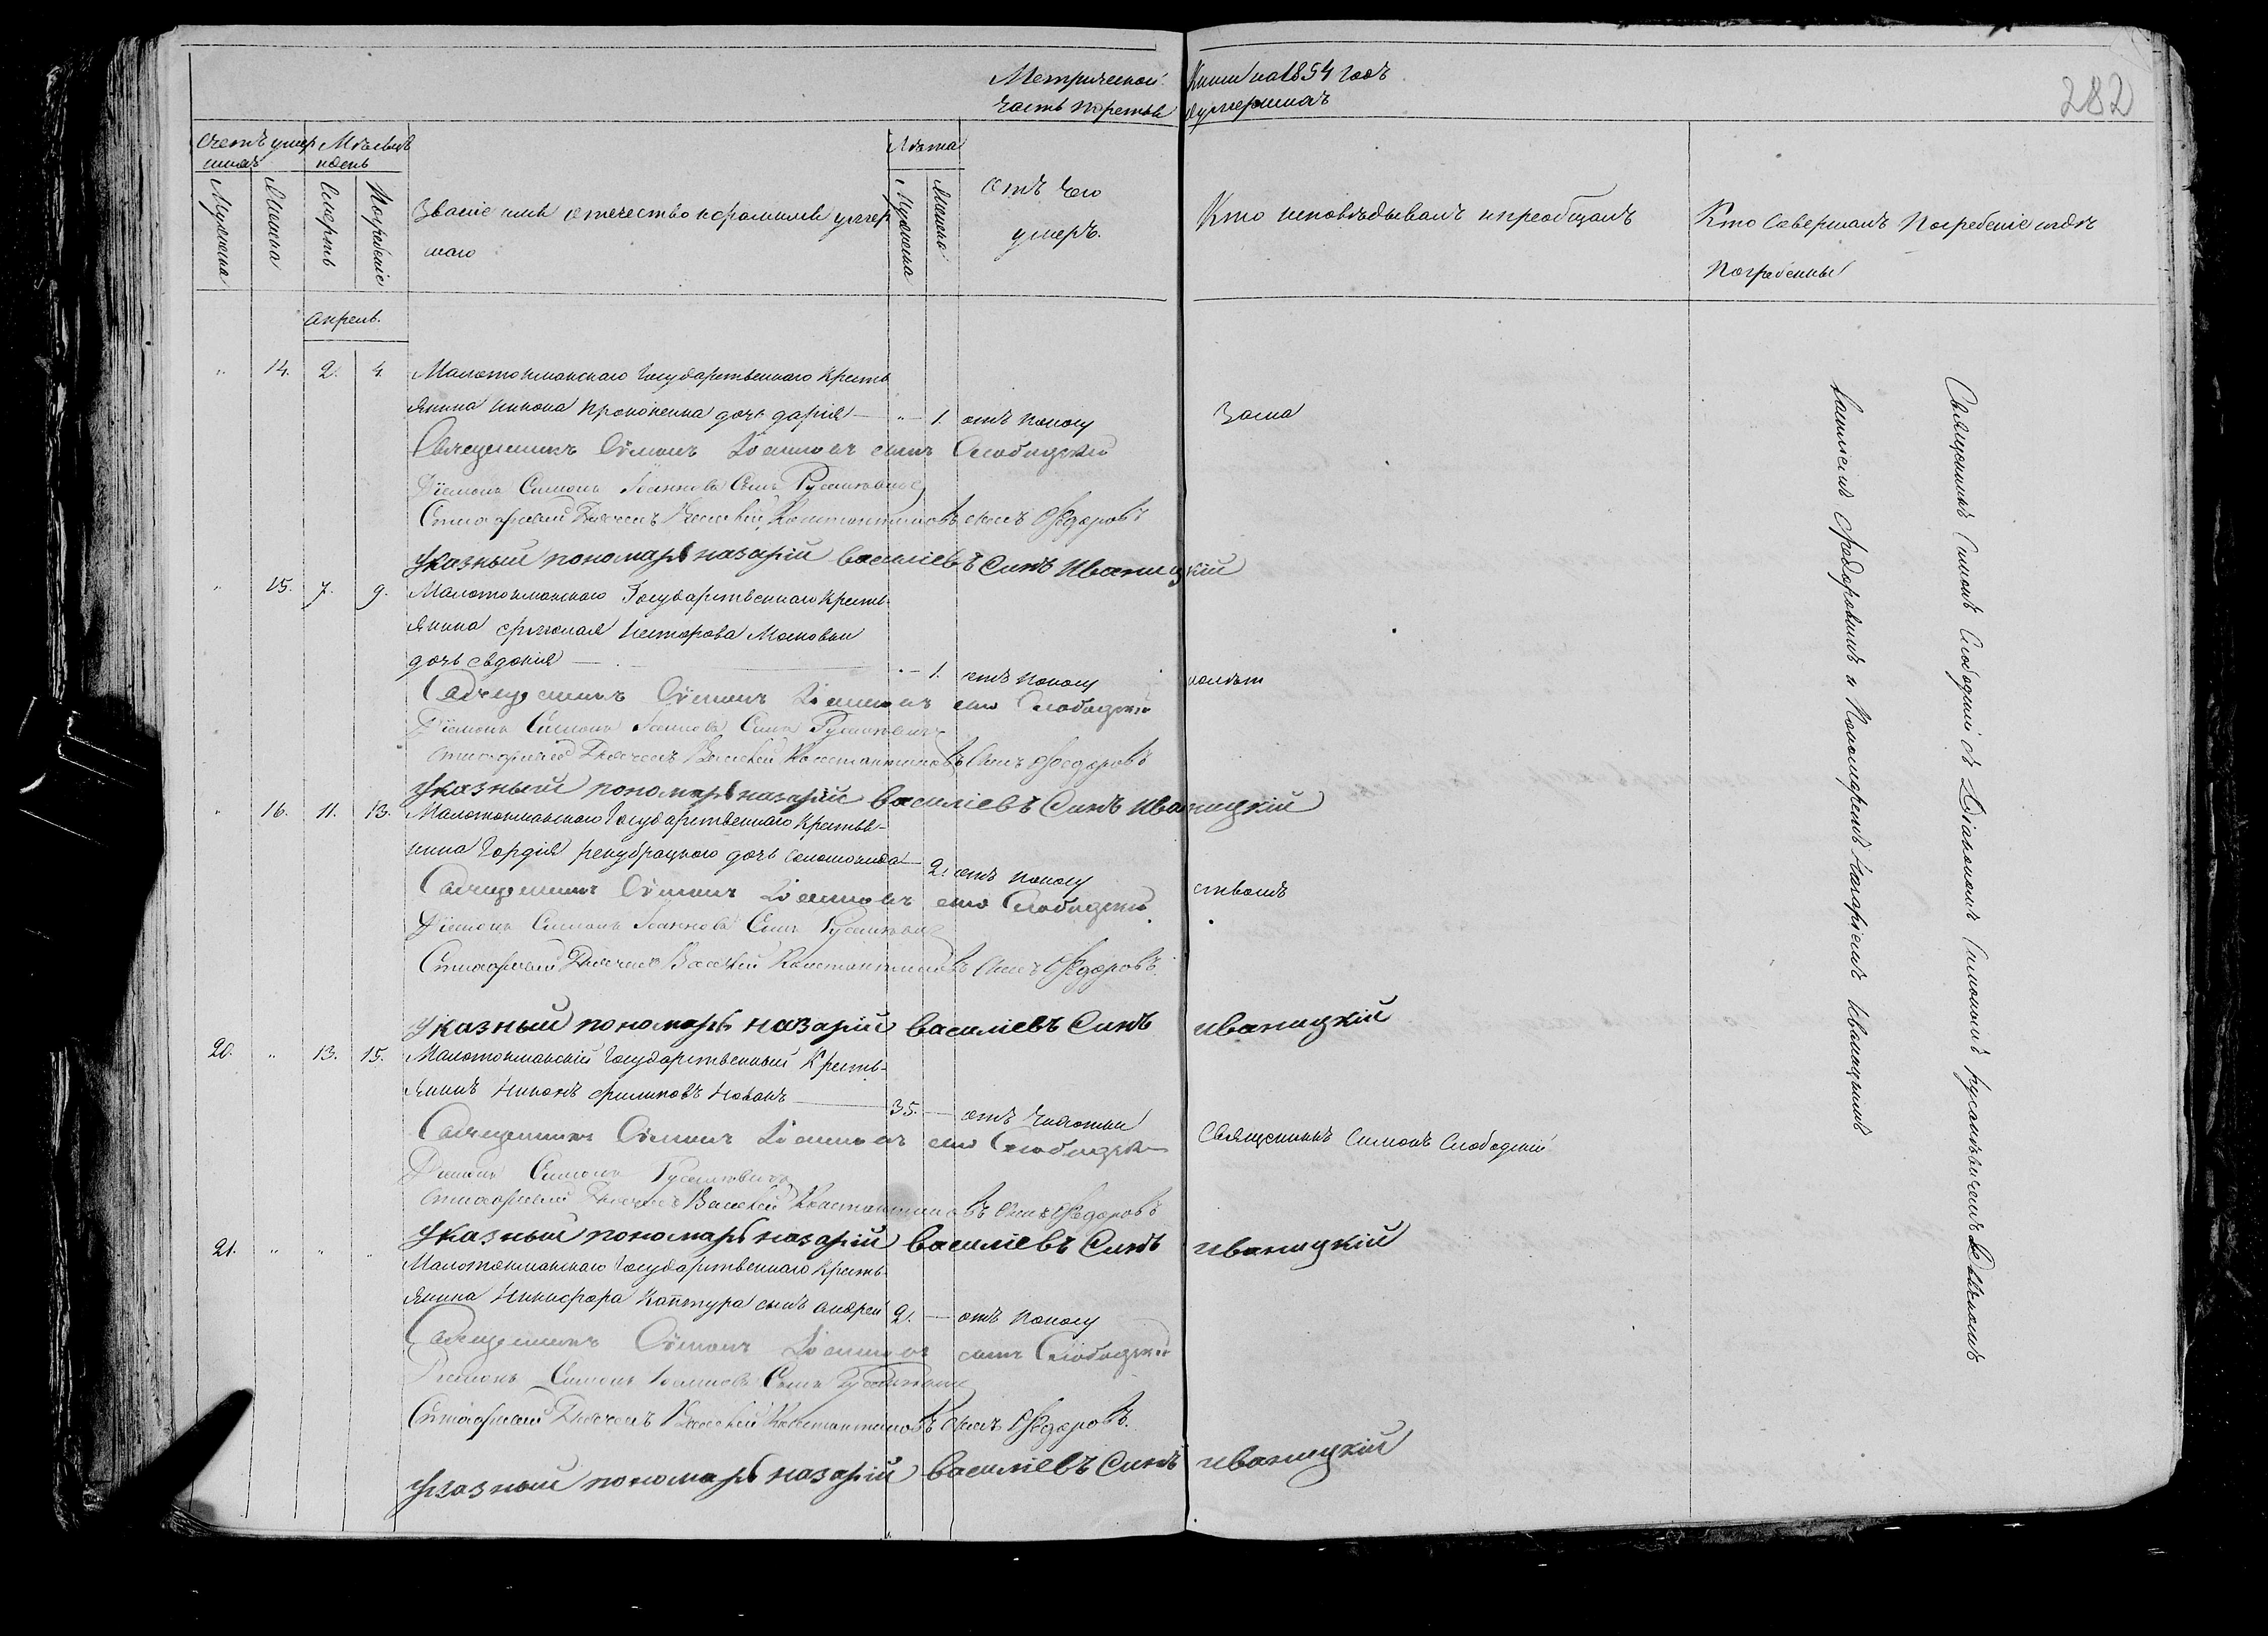 Метрической Книги на 1854 годъ
282
Часть третья о умершихъ
Счетъ умер Мѣсяцъ
шихъ идень
Мужеска
Женска
Смерть
Погребеніе
Званіе имя отечество и фамилия умер
шаго
Лѣта
Мужеска
Женска
Отъ чего
умеръ.
Кто исповѣдывалъ и преобщалъ
Кто совершалъ Погребеніе и гдѣ
Погребенны
Апрель.
" 14. 2. 4. Малотокмакскаго Государственнаго Кресть
янина Никона Прокопенка дочь дарія — " 1. отъ поносу За ма
Священникъ Сѵмонъ Іоанновъ синъ Слободзскій
Діяконъ Симонъ Іоанновъ Сынъ
Стихарный Дьячокъ Василій Константиновъ сынъ Федоровъ
указный пономаръ назарій василіевъ Синъ Иваницкій
" 15. 7. 9. Малотокмакскаго Государственнаго Кресть-
янина Несторова Московки
дочь евдокія — 1. отъ поносу
Священникъ Сѵмонъ Іоанновъ Слободзскій
Діяконъ Симонъ Іоанновъ Сынъ
Стихарный Дьячокъ Василій Константиновъ Сынъ Федоровъ
указный пономаръ назарій василіевъ Синъ Иваницкій
" 16. 11. 13. Малотокмакскаго Государственнаго Крестья-
нина Гордія дочь соломонида 2. отъ поносу ствомъ
Священникъ Сѵмонъ Іоанновъ Слободзскій
Діяконъ Симонъ Іоанновъ Сынъ
Стихарный Дьячокъ Василій Константиновъ Сынъ Федоровъ.
указный пономаръ назарій василіевъ Синъ иваницкій
20. " 13. 15. Малотокмакскій Государственный Кресть-
янинъ Никонъ Филиповъ Новакъ — 35. — отъ Чихотки
Священникъ Симонъ Слободскій
Священникъ Сѵмонъ Іоанновъ Слободзскій
Діяконъ Симонъ
Стихарный Дьячокъ Василій Константиновъ Сынъ Федоровъ
указный пономаръ назарій василіевъ Синъ иваницкій
21. " " " Малотокмакскаго Государственнаго Кресть-
янина Никифора Каптура сынъ андрей 2. — отъ поносу
Священникъ Сѵмонъ Іоанновъ синъ Слободзскій
Діяконъ Симонъ Іоанновъ Сынъ
Стихарный Дьячокъ Василій Константиновъ Сынъ Федоровъ.
указный пономаръ назарій василіевъ Синъ иваницкій
Священникъ Симонъ Слободскій съ Діакономъ Симономъ русаневичемъ Дьячкомъ
василіемъ Федоровымъ и Пономаремъ Назаріемъ Иваницкимъ